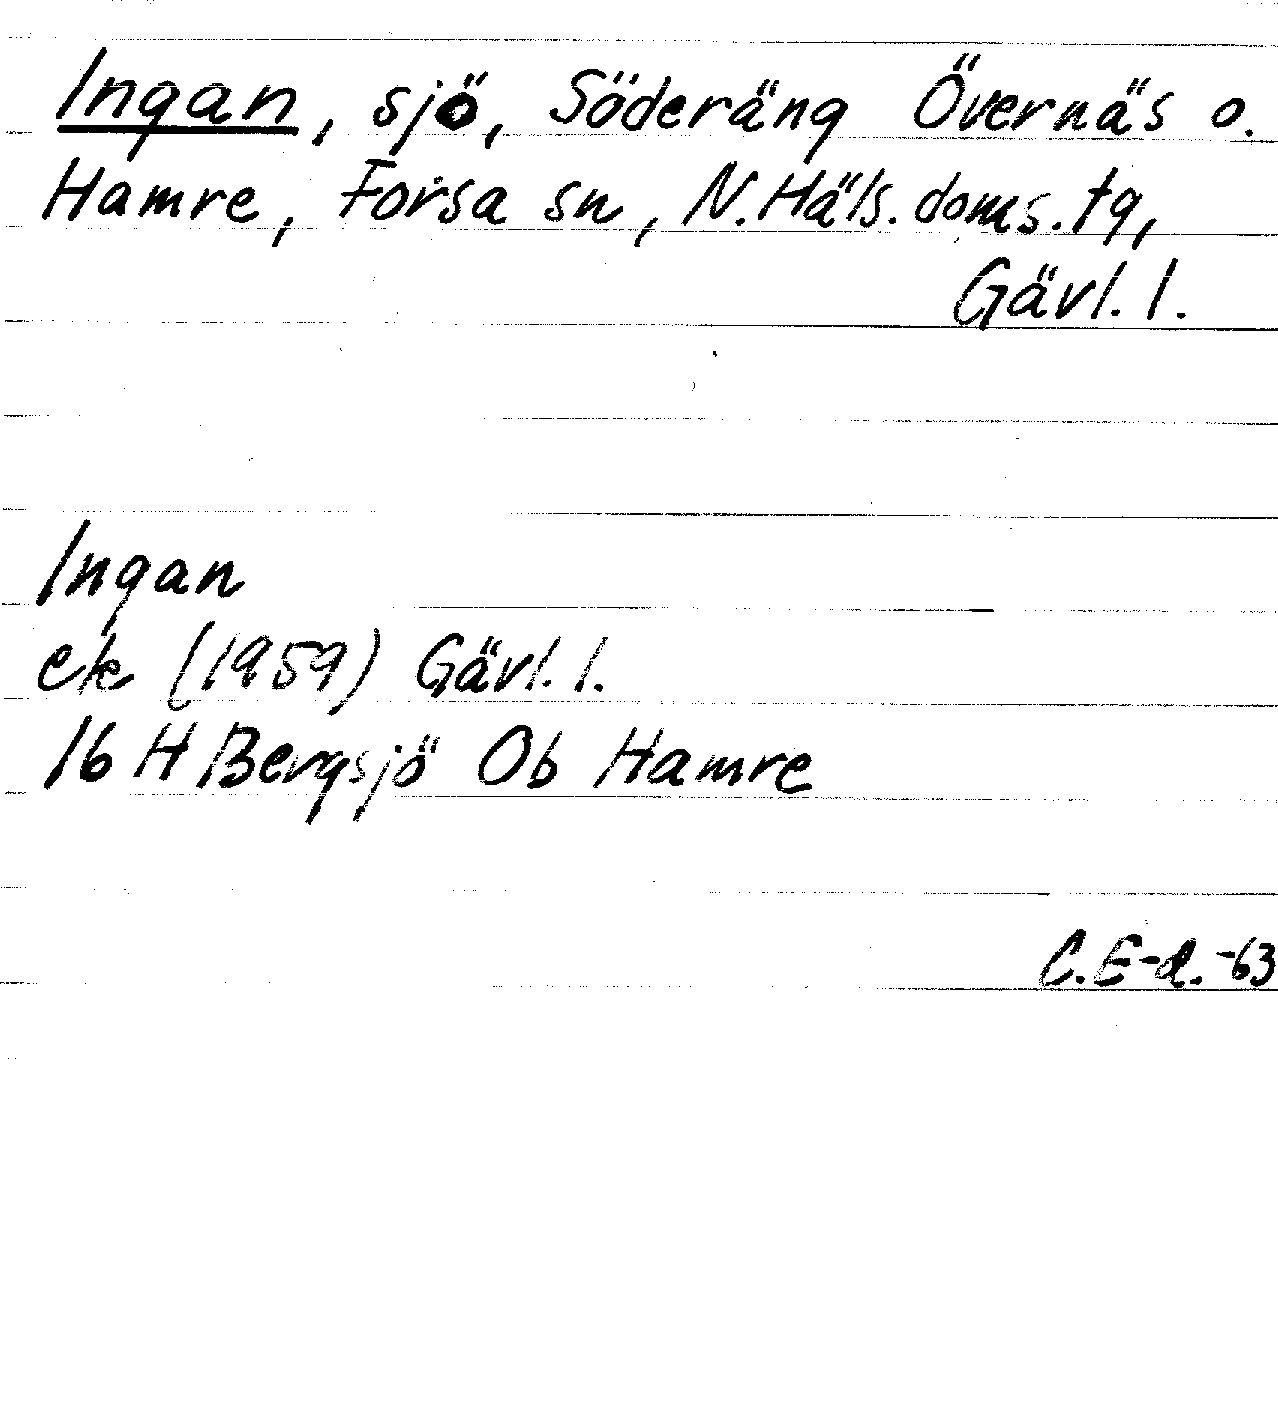 Ingan, sjö, Söderäng Övernäs o.
Hamre, Forsa sn, N. Häls. doms. tg,
Gävl. l.
Ingan
ek (1959) Gävl. l.
16 H Bergsjö Ob Hamre
C. E-d. -63